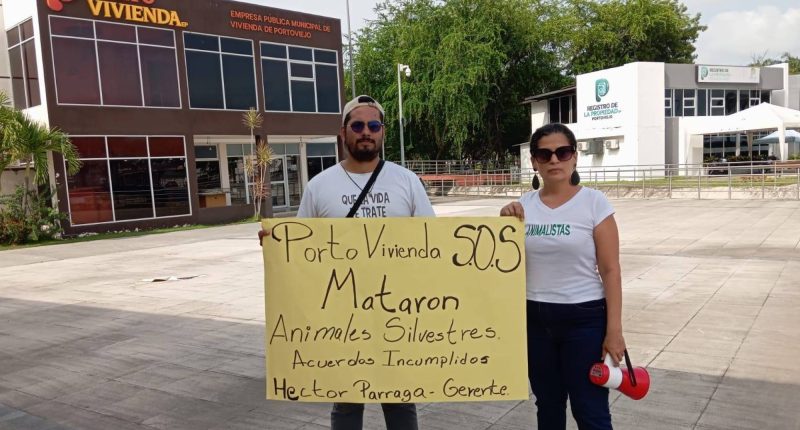 VIVIENDA EP
EMPRESA PÚBLICA MUNICIPAL
DE VIVIENDA DE PORTOVIEJO
REGISTRO DE
LA PROPIEDAD EP
PORTOVIEJO
QUE LA VIDA
TE TRATE
ANIMALISTAS
Porto Vivienda S.O.S
Mataron
Animales Silvestres.
Acuerdos Incumplidos
Hector Parraga - Gerente.